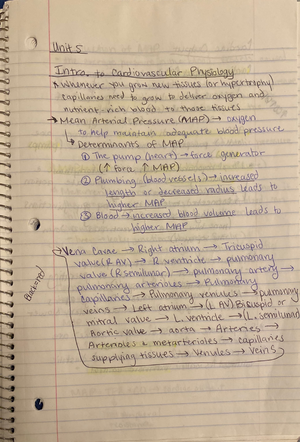 Unit 5
Intro. to Cardiovascular Physiology
* Whenever you grow new tissues (or hypertrophy)
capillaries need to grow to deliver oxygen and
nutrient-rich blood to those tissues
→ Mean Arterial Pressure (MAP) → oxygen
to help maintain adequate blood pressure
↳ Determinants of MAP
① The pump (heart) → force generator
(↑ force ↑ MAP)
② Plumbing (blood vessels) → increased
length or decreased radius leads to
higher MAP
③ Blood → increased blood volume leads to
higher MAP
→ Vena Cavae → Right atrium → Tricuspid
valve (R AV) → R ventricle → pulmonary
valve (R semilunar) → pulmonary artery →
pulmonary arterioles → Pulmonary
capillaries → Pulmonary venules → pulmonary
veins → Left atrium → (L AV) Bicuspid or
mitral valve → L. ventricle → (L. semilunar)
Aortic valve → aorta → Arteries →
Arterioles & metarterioles → capillaries
supplying tissues → venules → veins